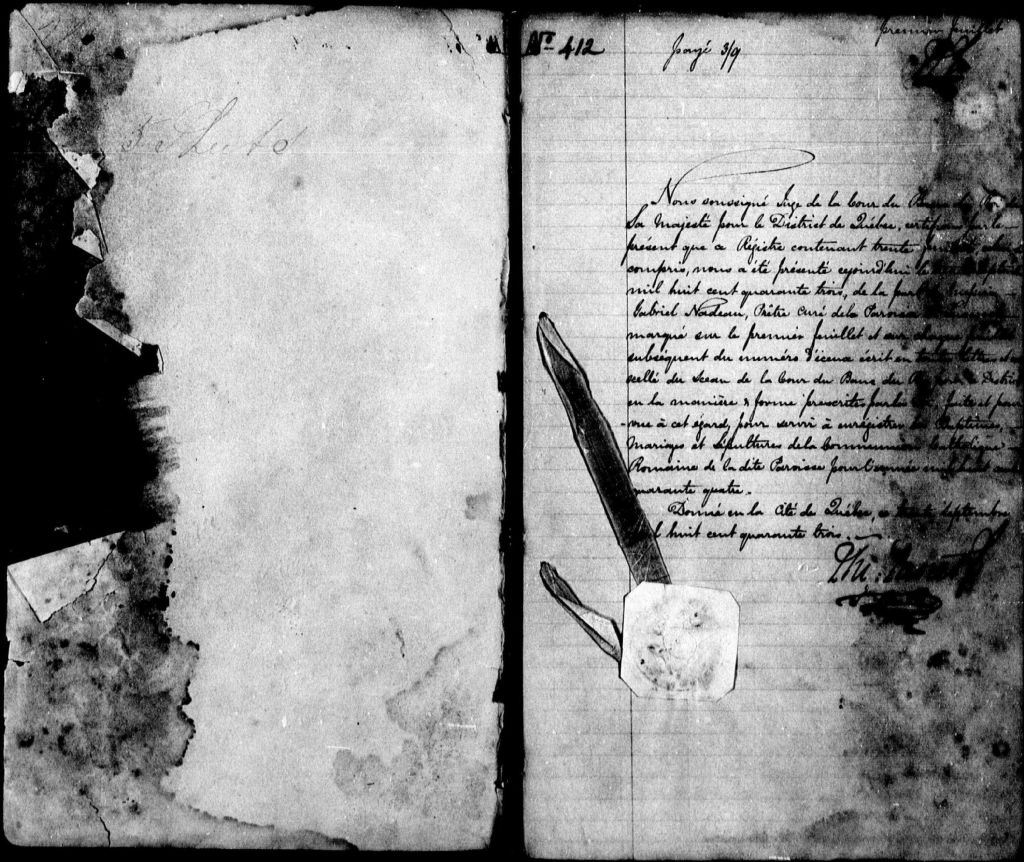 Ste Luce
No 412
payé 3/9
premier feuillet
Nous soussigné Juge de la Cour du Banc du Roi de
Sa Majesté pour le District de Québec, certifions par le
présent que ce Régistre contenant trente
compris, nous a été présenté cejourd'hui le
mil huit cent quarante trois, de la part
Gabriel Nadeau, Prêtre Curé de la Paroisse
marqué sur le premier feuillet et sur chaque
subséquent du numéro d'iceux écrit en toutes lettres et
scellé du Sceau de la Cour du Banc du Roi pour le District
en la manière & forme prescrites par la Loi, faite et pour
vue à cet égard, pour servir à enrégistrer les Baptêmes,
Mariages et Sépultures de la Communion Catholique
Romaine de la dite Paroisse pour l'année mil huit cent
quarante quatre.
Donné en la Cité de Québec, ce trente Septembre
mil huit cent quarante trois.